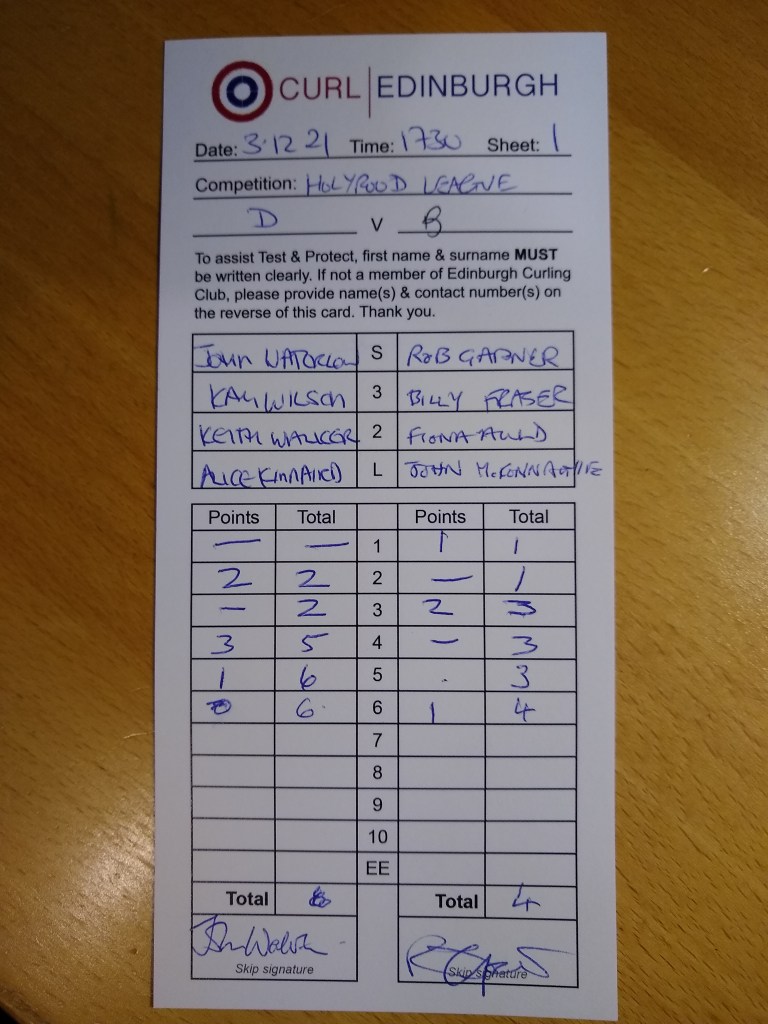 CURL | EDINBURGH
Date: 3.12 21 Time: 1730 Sheet: 1
Competition: HOLYROOD LEAGUE
D V B
To assist Test & Protect, first name & surname MUST
be written clearly. If not a member of Edinburgh Curling
Club, please provide name(s) & contact number(s) on
the reverse of this card. Thank you.
JOHN S ROB GARNER
KAY WILSON 3 BILLY FRASER
KEITH WALKER 2 FIONA AULD
ALICE KINNAIRD L JOHN
Points Total Points Total
— — 1 1 1
2 2 2 — 1
– 2 3 2 3
3 5 4 – 3
1 6 5 . 3
0 6 6 1 4
7
8
9
10
EE
Total 6 Total 4
Skip signature Skip signature